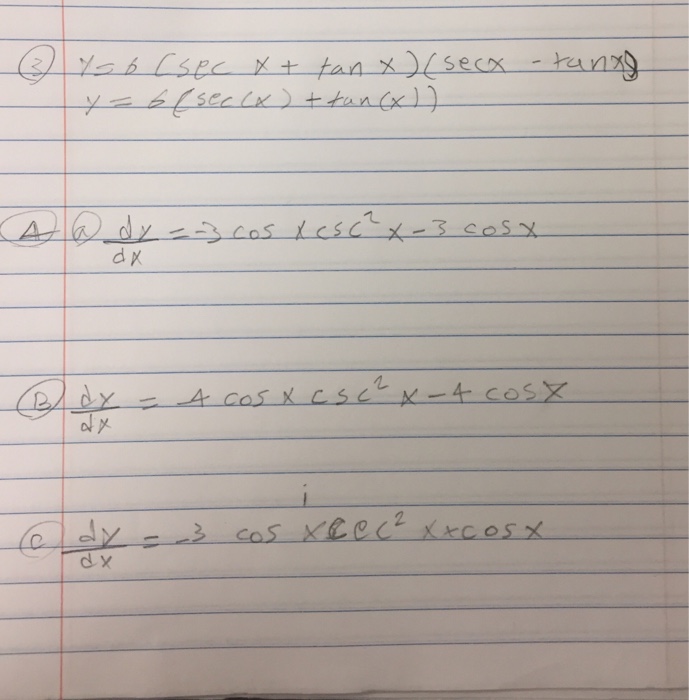 ③ y=6 (sec x + tan x)(secx - tanx)
y = 6(sec(x) + tan(x))
A ⓐ dy/dx = -3 cos x csc² x - 3 cosx
Ⓑ dy/dx = 4 cos x csc² x - 4 cosx
i
Ⓒ dy/dx = -3 cos x cec² x x cosx